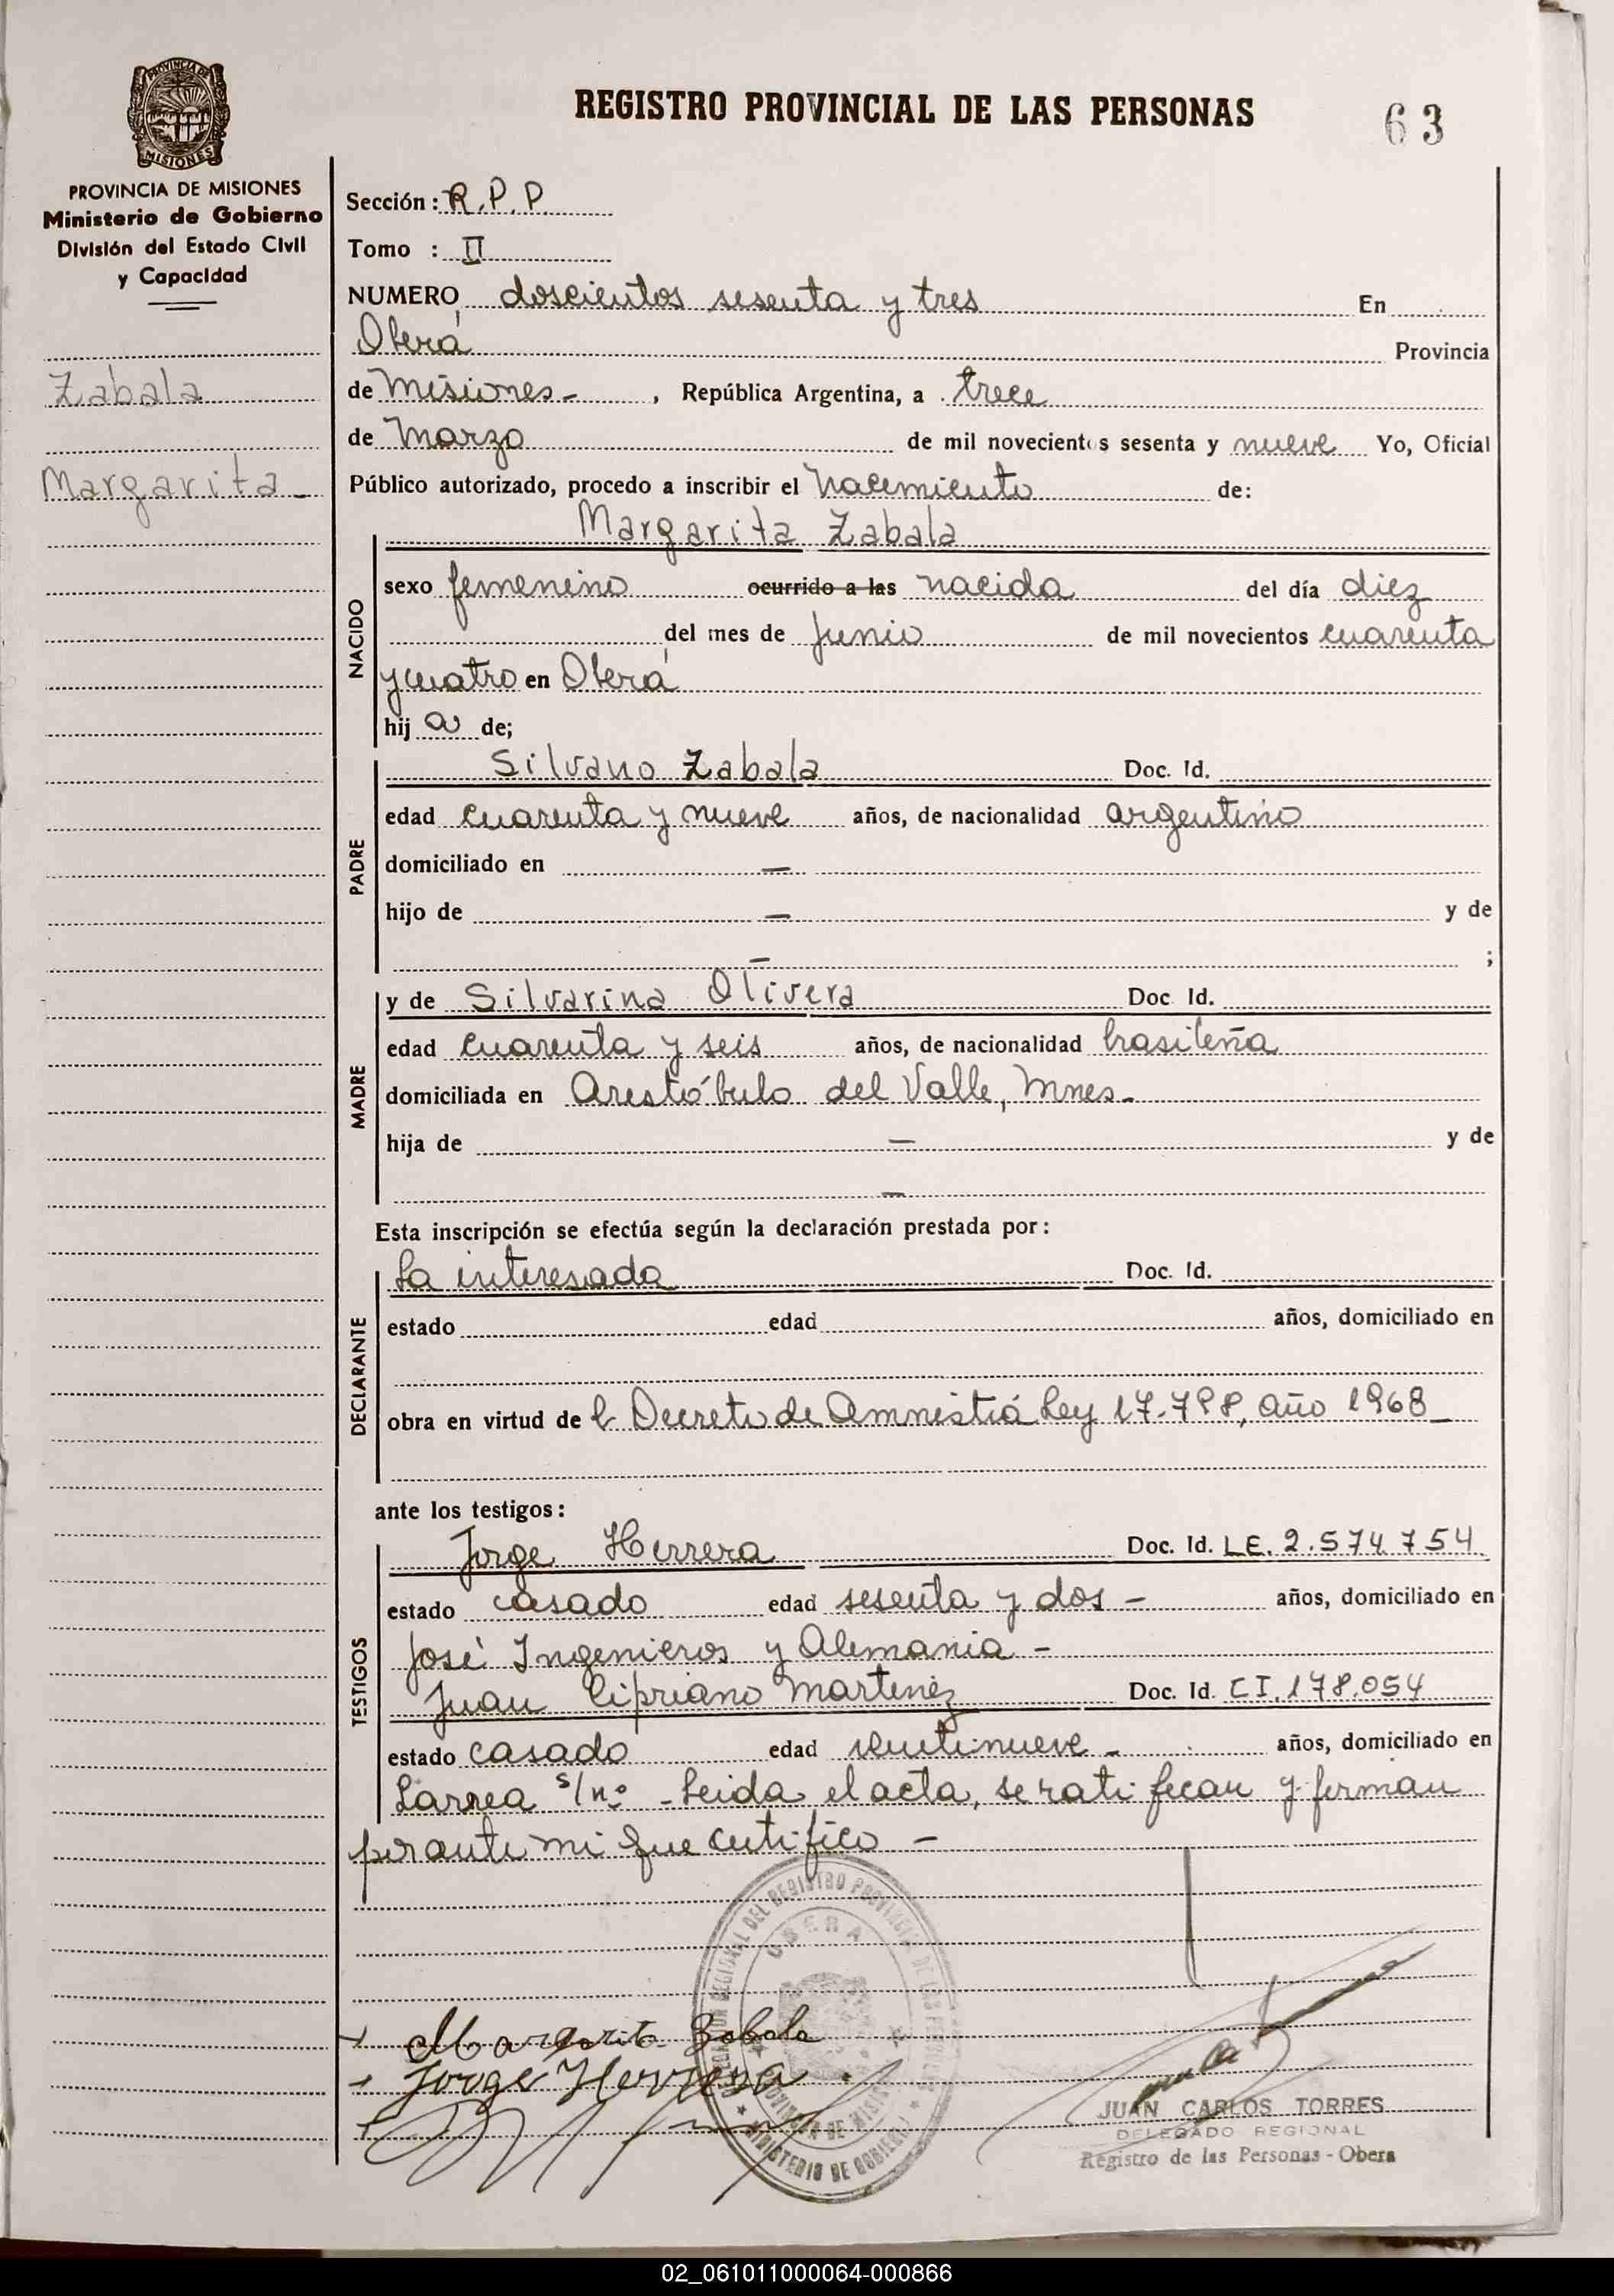 REGISTRO PROVINCIAL DE LAS PERSONAS
63
PROVINCIA DE MISIONES
MISIONES
PROVINCIA DE MISIONES
Ministerio de Gobierno
División del Estado Civil
y Capacidad
Zabala
Margarita
Sección: R.P.P.
Tomo : II
NUMERO doscientos sesenta y tres En
Oberá Provincia
de Misiones- , República Argentina, a trece
de Marzo de mil novecientos sesenta y nueve Yo, Oficial
Público autorizado, procedo a inscribir el Nacimiento de:
Margarita Zabala
NACIDO
sexo femenino ocurrido a las nacida del día diez
del mes de Junio de mil novecientos cuarenta
y cuatro en Oberá
hij a de;
PADRE
Silvano Zabala Doc. Id.
edad cuarenta y nueve años, de nacionalidad argentino
domiciliado en —
hijo de — y de
— ;
MADRE
y de Silvarina Olivera Doc. Id.
edad cuarenta y seis años, de nacionalidad brasileña
domiciliada en Arestóbulo del Valle, Mnes.
hija de — y de
—
Esta inscripción se efectúa según la declaración prestada por:
DECLARANTE
La interesada Doc. Id.
estado edad años, domiciliado en
obra en virtud de Decreto de Amnistiá Ley 17.798, año 1968
ante los testigos:
TESTIGOS
Jorge Herrera Doc. Id. LE. 2.574.754
estado casado edad sesenta y dos - años, domiciliado en
José Ingenieros y Alemania -
Juan Cipriano Martinez Doc. Id. CI. 178.054
estado casado edad veintinueve - años, domiciliado en
Larrea s/nº - Leida el acta, se ratifican y firman
por ante mi que certifico -
OBERA
MINISTERIO DE GOBIERNO
Margarita Zabala
Jorge Herrera
JUAN CARLOS TORRES
DELEGADO REGIONAL
Registro de las Personas - Obera
02_061011000064-000866